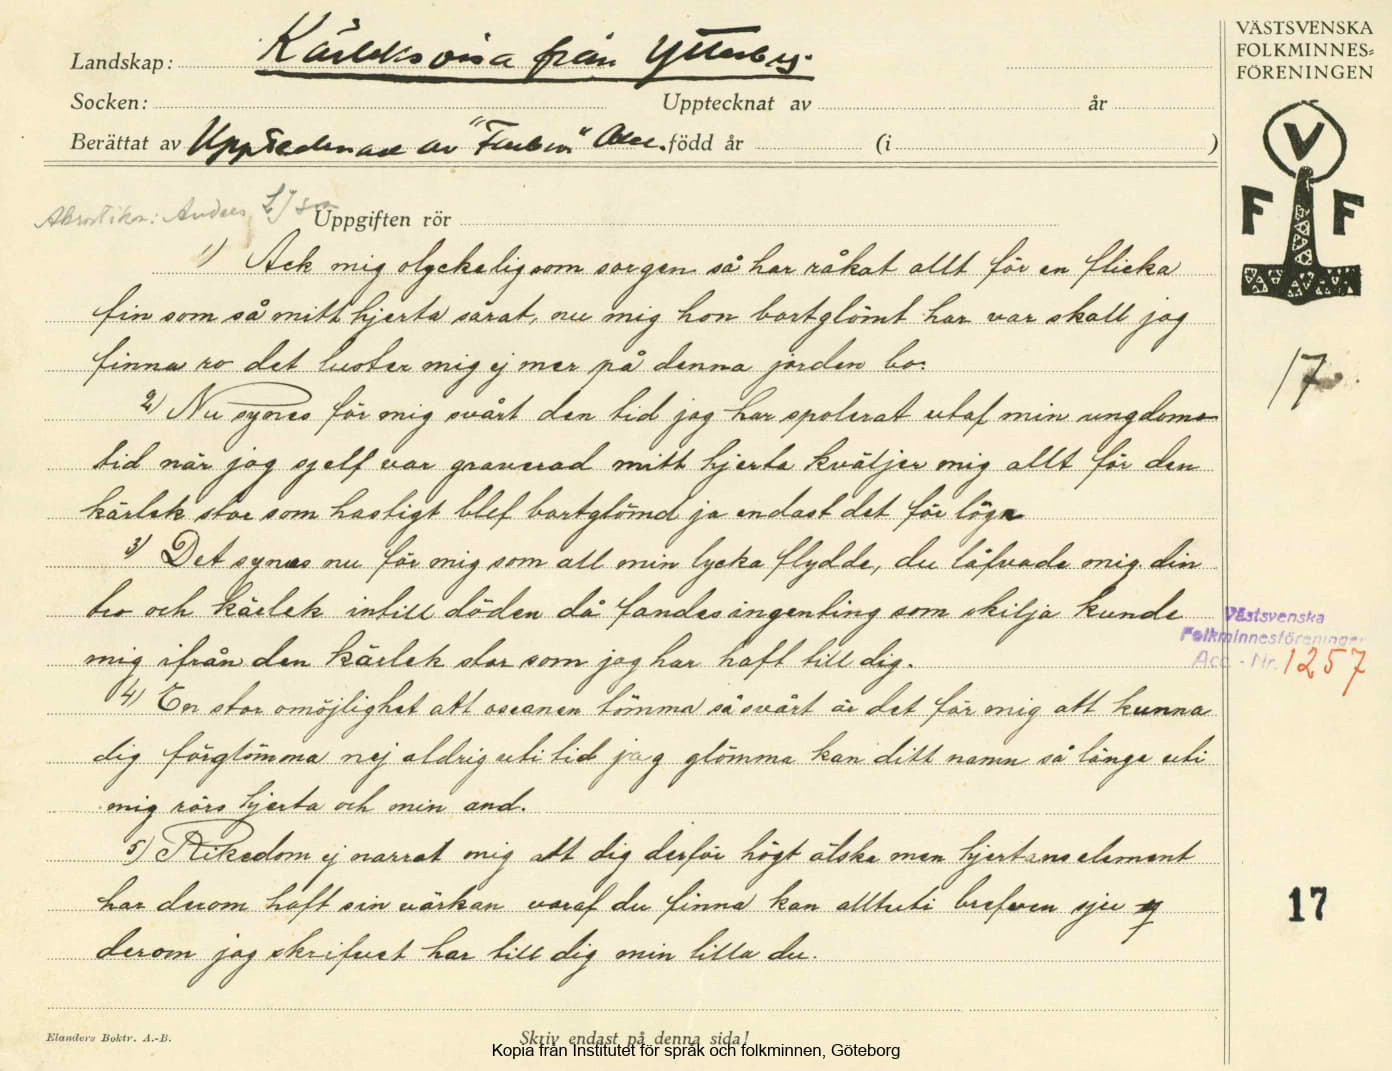 Landskap: Kärleksvisa från Ytterby.
VÄSTSVENSKA
FOLKMINNES=
FÖRENINGEN
Socken: Upptecknat av år
Berättat av Upptecknad av född år (i )
V
F F
Akrostikon: Anders
Uppgiften rör
1) Ack mig olyckeligsom sorgen så har råkat allt för en flicka
fin som så mitt hjerta sårat, nu mig hon bortglömt har var skall jag
finna ro det lyster mig ej mer på denna jorden bo.
17
2) Nu synes för mig svårt den tid jag har spolerat utaf min ungdoms
tid när jag sjelf var graverad mitt hjerta kväljer mig allt för den
kärlek stor som hastigt blef bortglömd ja endast det för lögn
3) Det synes nu för mig som all min lycka flydde, du låfvade mig din
tro och kärlek intill döden då fandes ingenting som skilja kunde
mig ifrån den kärlek stor som jag har haft till dig.
Västsvenska
Folkminnesföreningen
Acc.-Nr. 1257
4) En stor omöjlighet att oseanen tömma så svårt är det för mig att kunna
dig förglömma nej aldrig uti tid jag glömma kan ditt namn så länge uti
mig rörs hjerta och min and.
5) Rikedom ej narrat mig att dig derför högt älska men hjertans element
har derom haft sin värkan varaf du finna kan alltuti brefven sju 7
17
derom jag skrifvet har till dig min lilla du.
Elanders Boktr. A.-B.
Skriv endast på denna sida!
Kopia från Institutet för språk och folkminnen, Göteborg